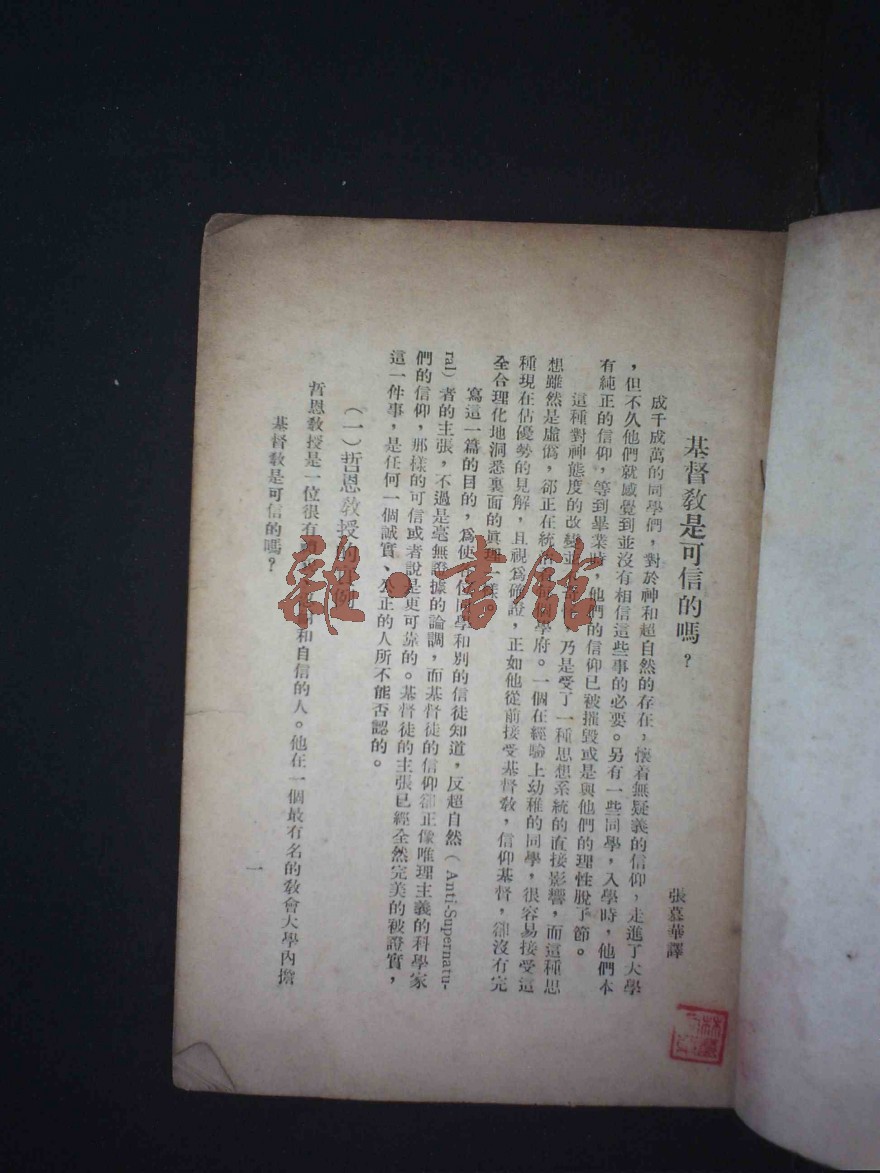 基督教是可信的嗎?
張慕華譯
成千成萬的同學們,對於神和超自然的存在,懷着無疑義的信仰,走進了大學
,但不久他們就感覺到並沒有相信這些事的必要。另有一些同學,入學時,他們本
有純正的信仰,等到畢業時,他們的信仰已被摧毀或是與他們的理性脫了節。
這種對神態度的改變並 乃是受了一種思想系統的直接影響,而這種思
想雖然是虛僞,卻正在統 學府。一個在經驗上幼稚的同學,很容易接受這
種現在佔優勢的見解,且視爲確證,正如他從前接受基督教,信仰基督,卻沒有完
全合理化地洞悉裏面的眞理一樣
寫這一篇的目的,爲使 同學和別的信徒知道,反超自然(Anti-Supernatu-
ral)者的主張,不過是毫無證據的論調,而基督徒的信仰卻正像唯理主義的科學家
們的信仰,那樣的可信或者說是更可靠的。基督徒的主張已經全然完美的被證實,
這一件事,是任何一個誠實、公正的人所不能否認的。
(一)哲恩教授的 例
哲恩教授是一位很有 和自信的人。他在一個最有名的教會大學內擔
基督教是可信的嗎?
一
雜·書館